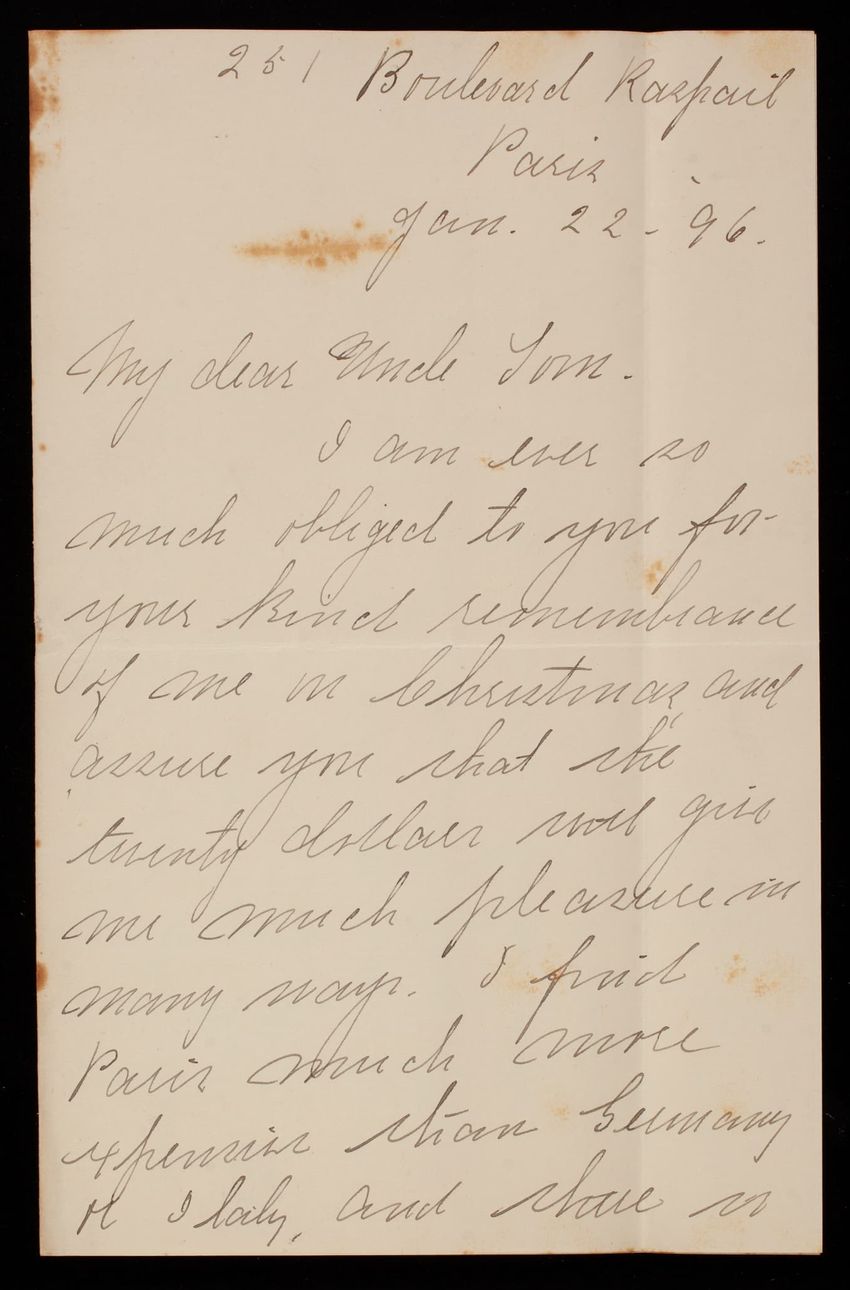 251 Boulevard Raspail
Paris
Jan. 22 - 96.
My dear Uncle Tom.
I am ever so
much obliged to you for
your kind remembrance
of me on Christmas, and
assure you that the
twenty dollars will give
me much pleasure in
many ways. I find
Paris much more
expensive than Germany
or Italy, and there is